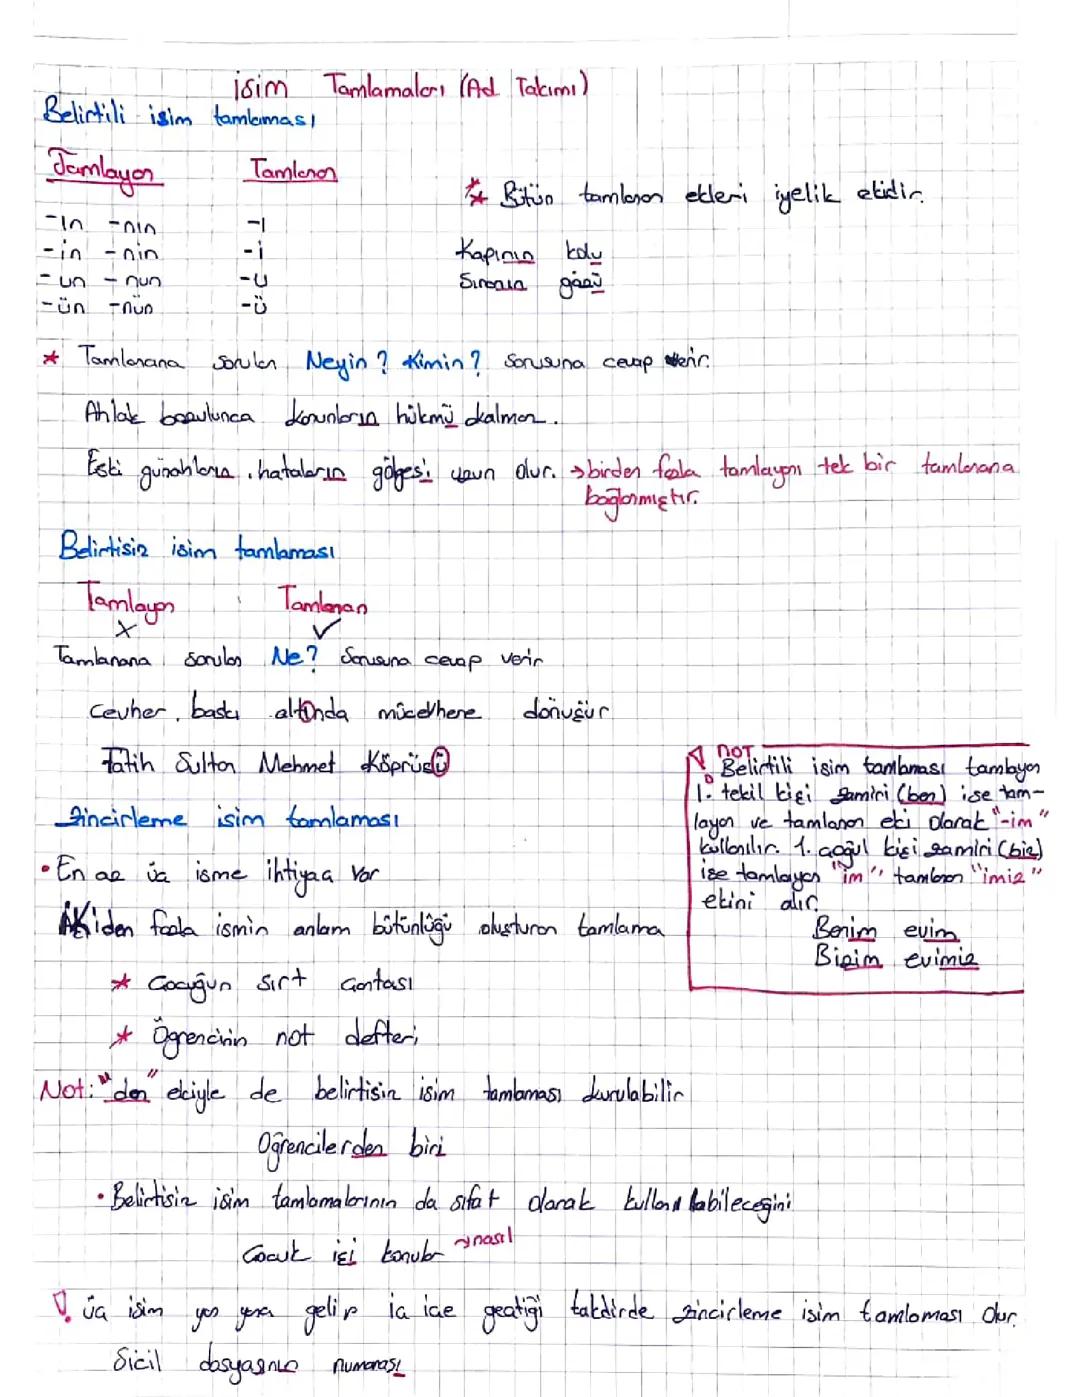 isim Tamlamaları (Ad Takımı)
Belirtili isim tamlaması
Tamlayan Tamlanan
-ın -nın -ı
-in -nin -i
-un -nun -u
-ün -nün -ü
* Bütün tamlanan ekleri iyelik ekidir.
Kapının kolu
Sıranın gözü
* Tamlanana sorulan Neyin? Kimin? sorusuna cevap verir.
Ahlak bozulunca kanunların hükmü kalmaz.
Eski günahların, hataların gölgesi uzun olur. → birden fazla tamlayanı tek bir tamlanana
bağlanmıştır.
Belirtisiz isim tamlaması
Tamlayan Tamlanan
x ✓
Tamlanana sorulan Ne? Sorusuna cevap verir
Cevher, baskı altında mücevhere dönüşür
Fatih Sultan Mehmet Köprüsü
Zincirleme isim tamlaması
• En az üç isme ihtiyaç var
İkiden fazla ismin anlam bütünlüğü oluşturan tamlama
* Çocuğun sırt çantası
* Öğrencinin not defteri
! NOT
Belirtili isim tamlaması tamlayan
1. tekil kişi zamiri (ben) ise tam-
layan ve tamlanan eki olarak "-im"
kullanılır. 1. çoğul kişi zamiri (biz)
ise tamlayan "im" tamlanan "imiz"
ekini alır.
Benim evim
Bizim evimiz
Not: "den" ekiyle de belirtisiz isim tamlaması kurulabilir
Öğrencilerden biri
• Belirtisiz isim tamlamalarının da sıfat olarak kullanılabileceğini
Çocuk işi konular → nasıl
! üç isim yan yana gelip iç içe geçtiği takdirde zincirleme isim tamlaması olur.
Sicil dosyasının numarası